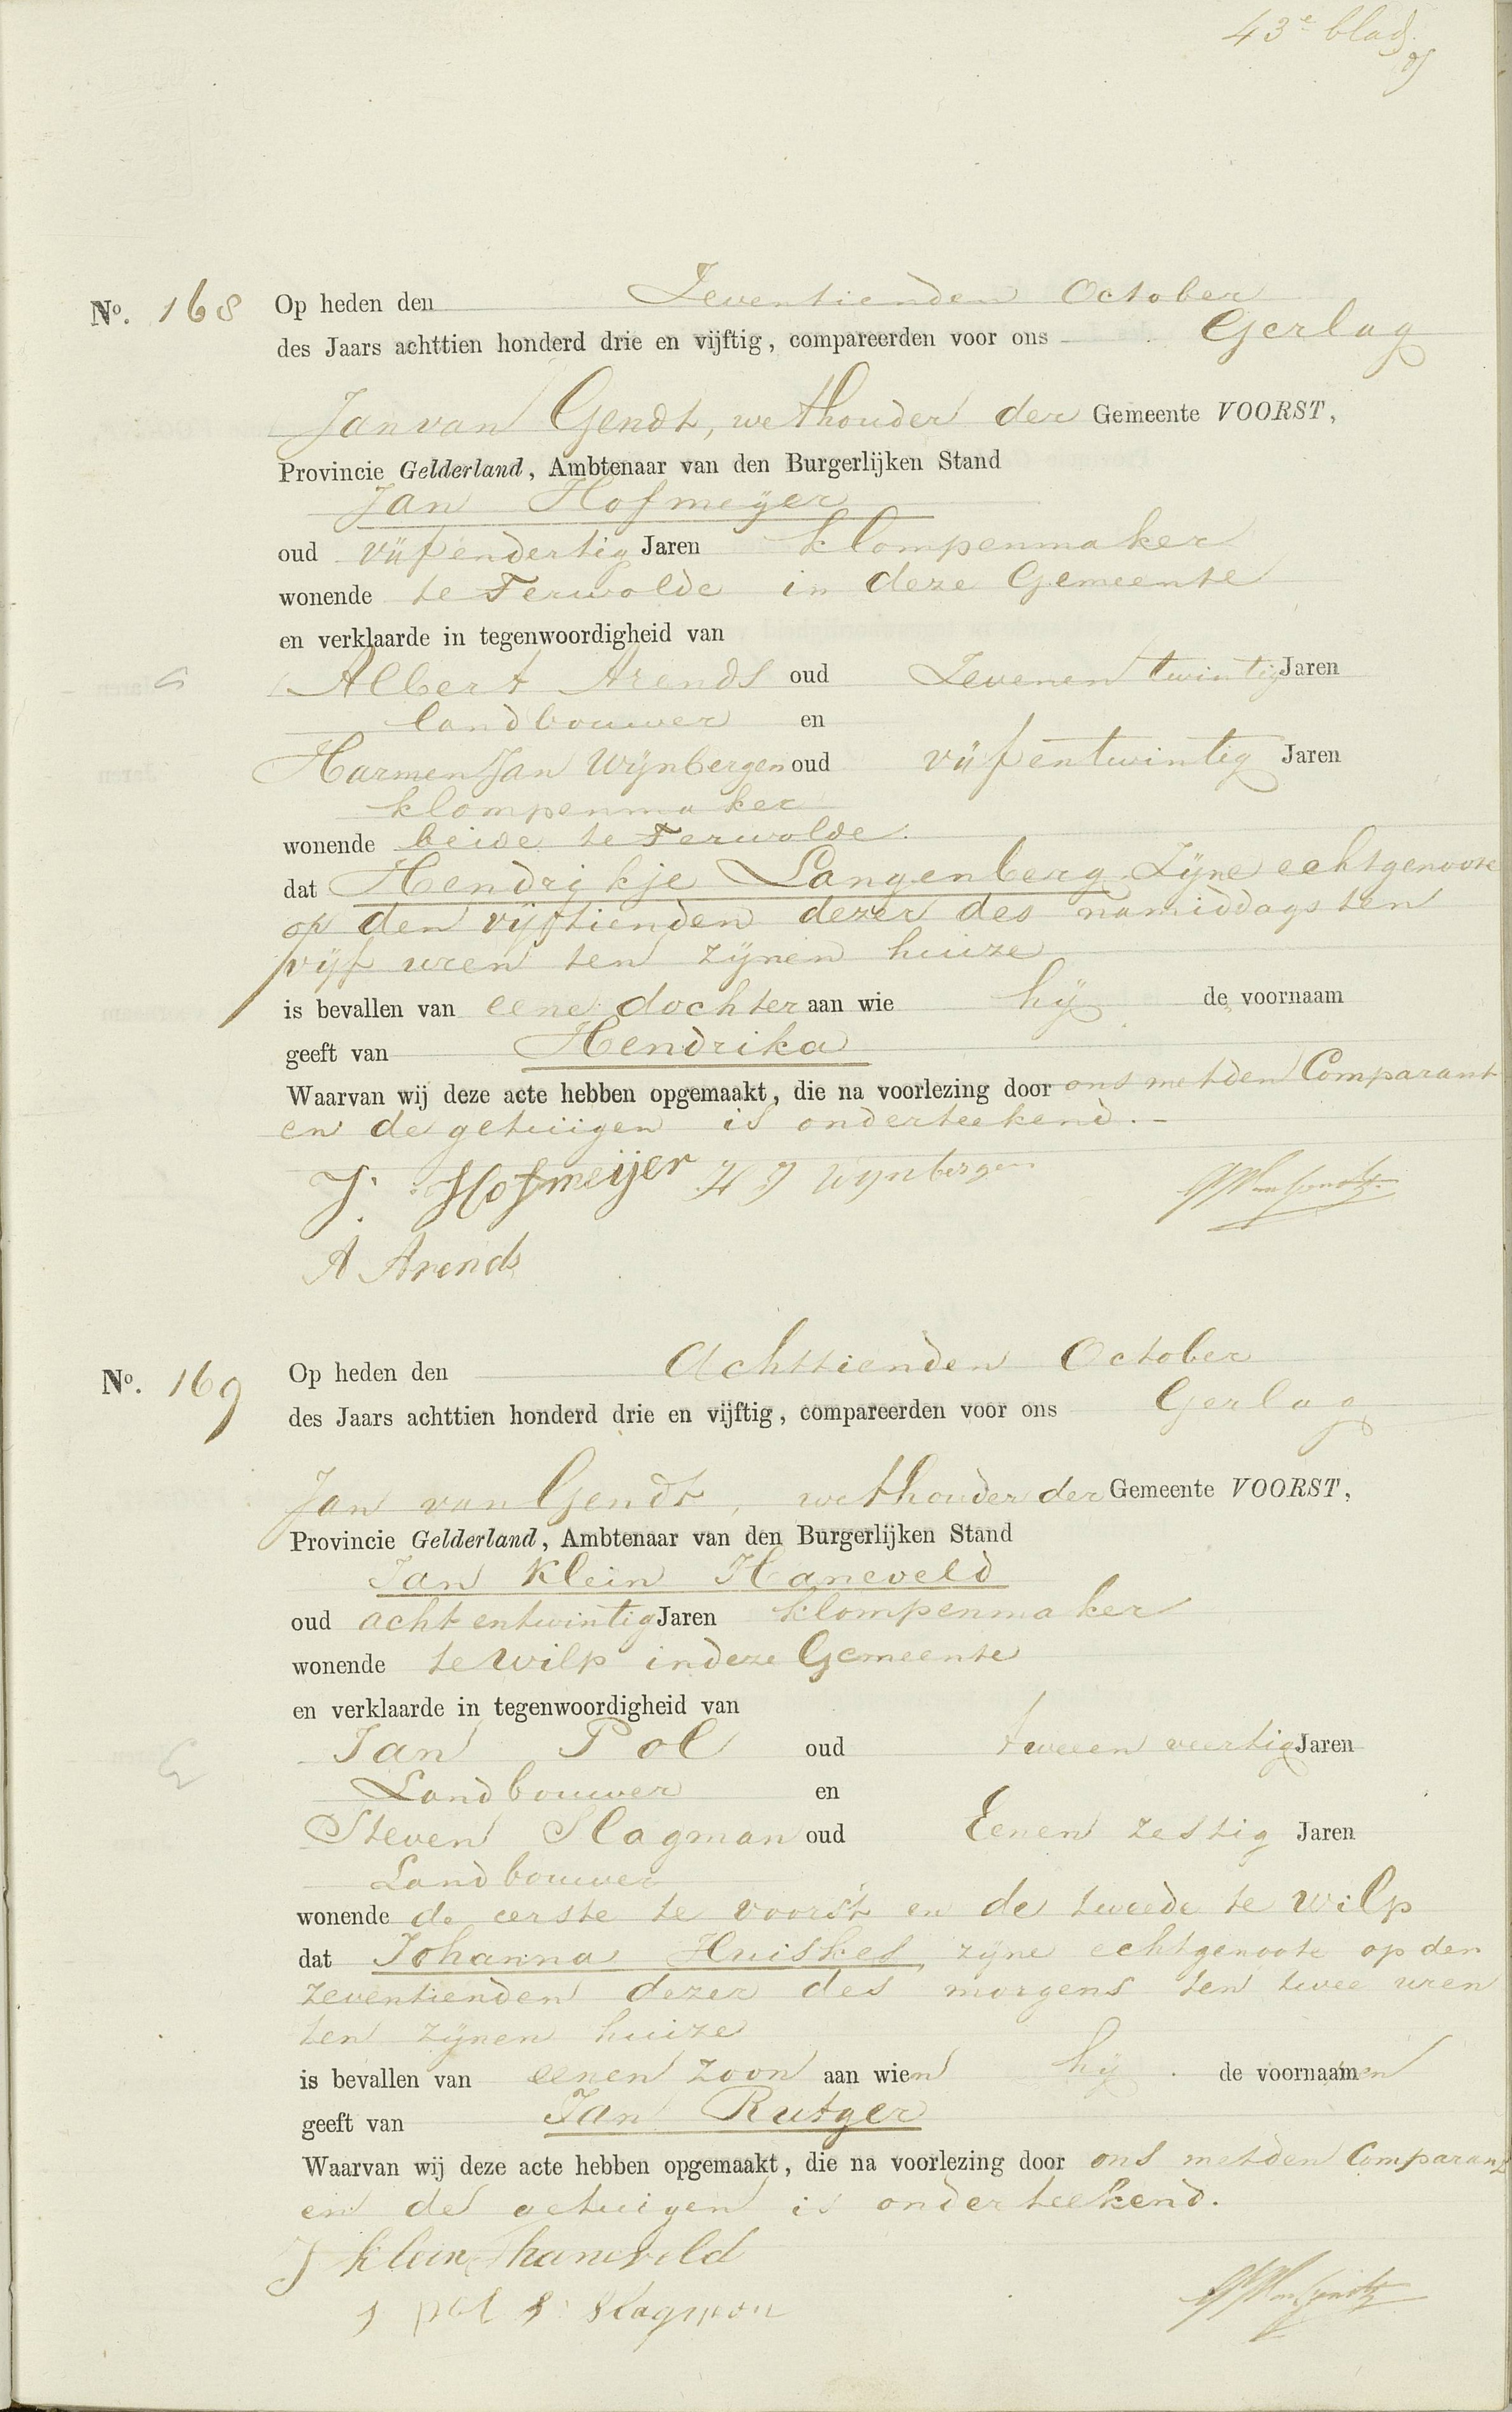 43e blad
No. 168 Op heden den Zeventienden October
des Jaars achttien honderd drie en vijftig, compareerden voor ons Gerlag
Jan van Gendt, wethouder der Gemeente VOORST,
Provincie Gelderland, Ambtenaar van den Burgerlijken Stand
Jan Hofmeijer
oud vijfendertig Jaren klompenmaker
wonende te Terwolde in deze Gemeente
en verklaarde in tegenwoordigheid van
Albert Arends oud Zevenentwintig Jaren
landbouwer en
Harmen Jan Wijnbergen oud vijfentwintig Jaren
klompenmaker
wonende beide te Terwolde.
dat Hendrikje Langenberg Zijne echtgenoote
op den vijftienden dezer des namiddags ten
vijf uren ten zijnen huize
is bevallen van eene dochter aan wie hij de voornaam
geeft van Hendrika
Waarvan wij deze acte hebben opgemaakt, die na voorlezing door ons met den Comparant
en de getuigen is onderteekend.-
J. Hofmeijer H J Wijnbergen
A Arends
No. 169 Op heden den Achttienden October
des Jaars achttien honderd drie en vijftig, compareerden voor ons Gerlag
Jan van Gendt, wethouder der Gemeente VOORST,
Provincie Gelderland, Ambtenaar van den Burgerlijken Stand
Jan Klein Haneveld
oud achtentwintig Jaren klompenmaker
wonende te Wilp in deze Gemeente
en verklaarde in tegenwoordigheid van
Jan Pol oud tweeen veertig Jaren
Landbouwer en
Steven Slagman oud Eenen zestig Jaren
Landbouwer
wonende de eerste te voorst en de tweede te Wilp
dat Johanna Huiskes, zijne echtgenoote op den
zeventienden dezer des morgens ten twee uren
ten zijnen huize
is bevallen van eenen zoon aan wien hij de voornaamen
geeft van Jan Rutger
Waarvan wij deze acte hebben opgemaakt, die na voorlezing door ons met den Comparant
en de getuigen is onderteekend.
J klein haneveld
J pol S Slagman